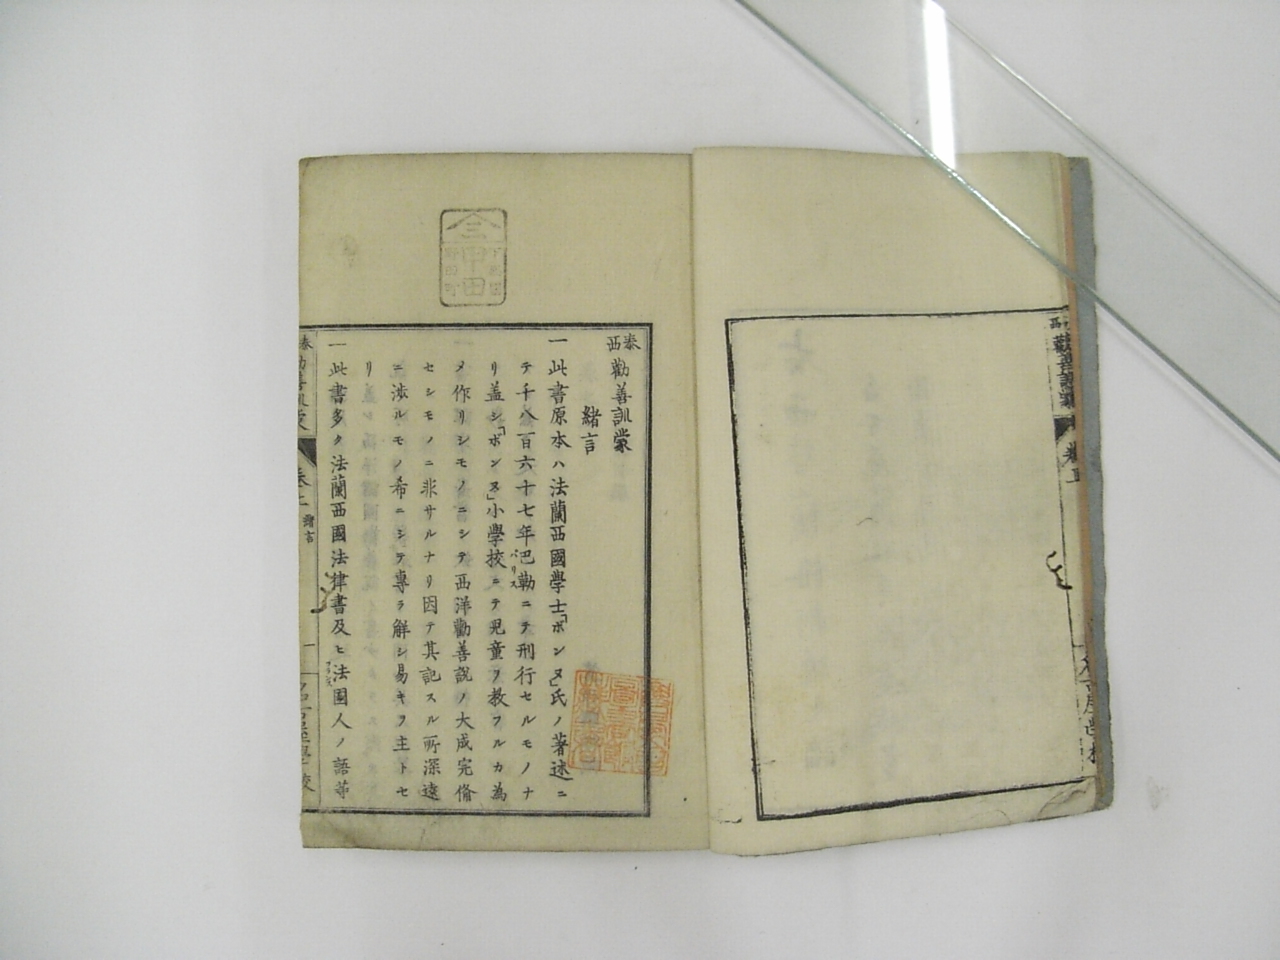 泰西勸善訓蒙
緒言
一此書原本ハ法蘭西國學士「ボンヌ」氏ノ著述ニ
テ千八百六十七年巴勒パリスニテ刑行セルモノナ
リ蓋シ「ボンヌ」小學校ニテ児童ヲ教フルカ為
メ作リシモノニシテ西洋勸善説ノ大成完備
セシモノニ非サルナリ因テ其記スル所深遠
ニ渉ルモノ希ニシテ專ラ解シ易キヲ主トセ
リ
一此書多ク法蘭西國法律書及ヒ法國人ノ語等
緒言
三
中田